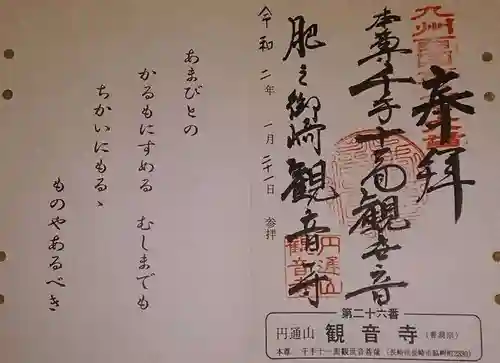 奉拝
九州
本尊千手十一面観世音
肥之御崎観音寺
令和二年一月二十一日参拝
円通山
観音寺
第二十六番
円通山 観音寺
本尊 千手十一面観世音菩薩
あまびとの
かるもにすめる むしまでも
ちかいにもるゝ
ものやあるべき